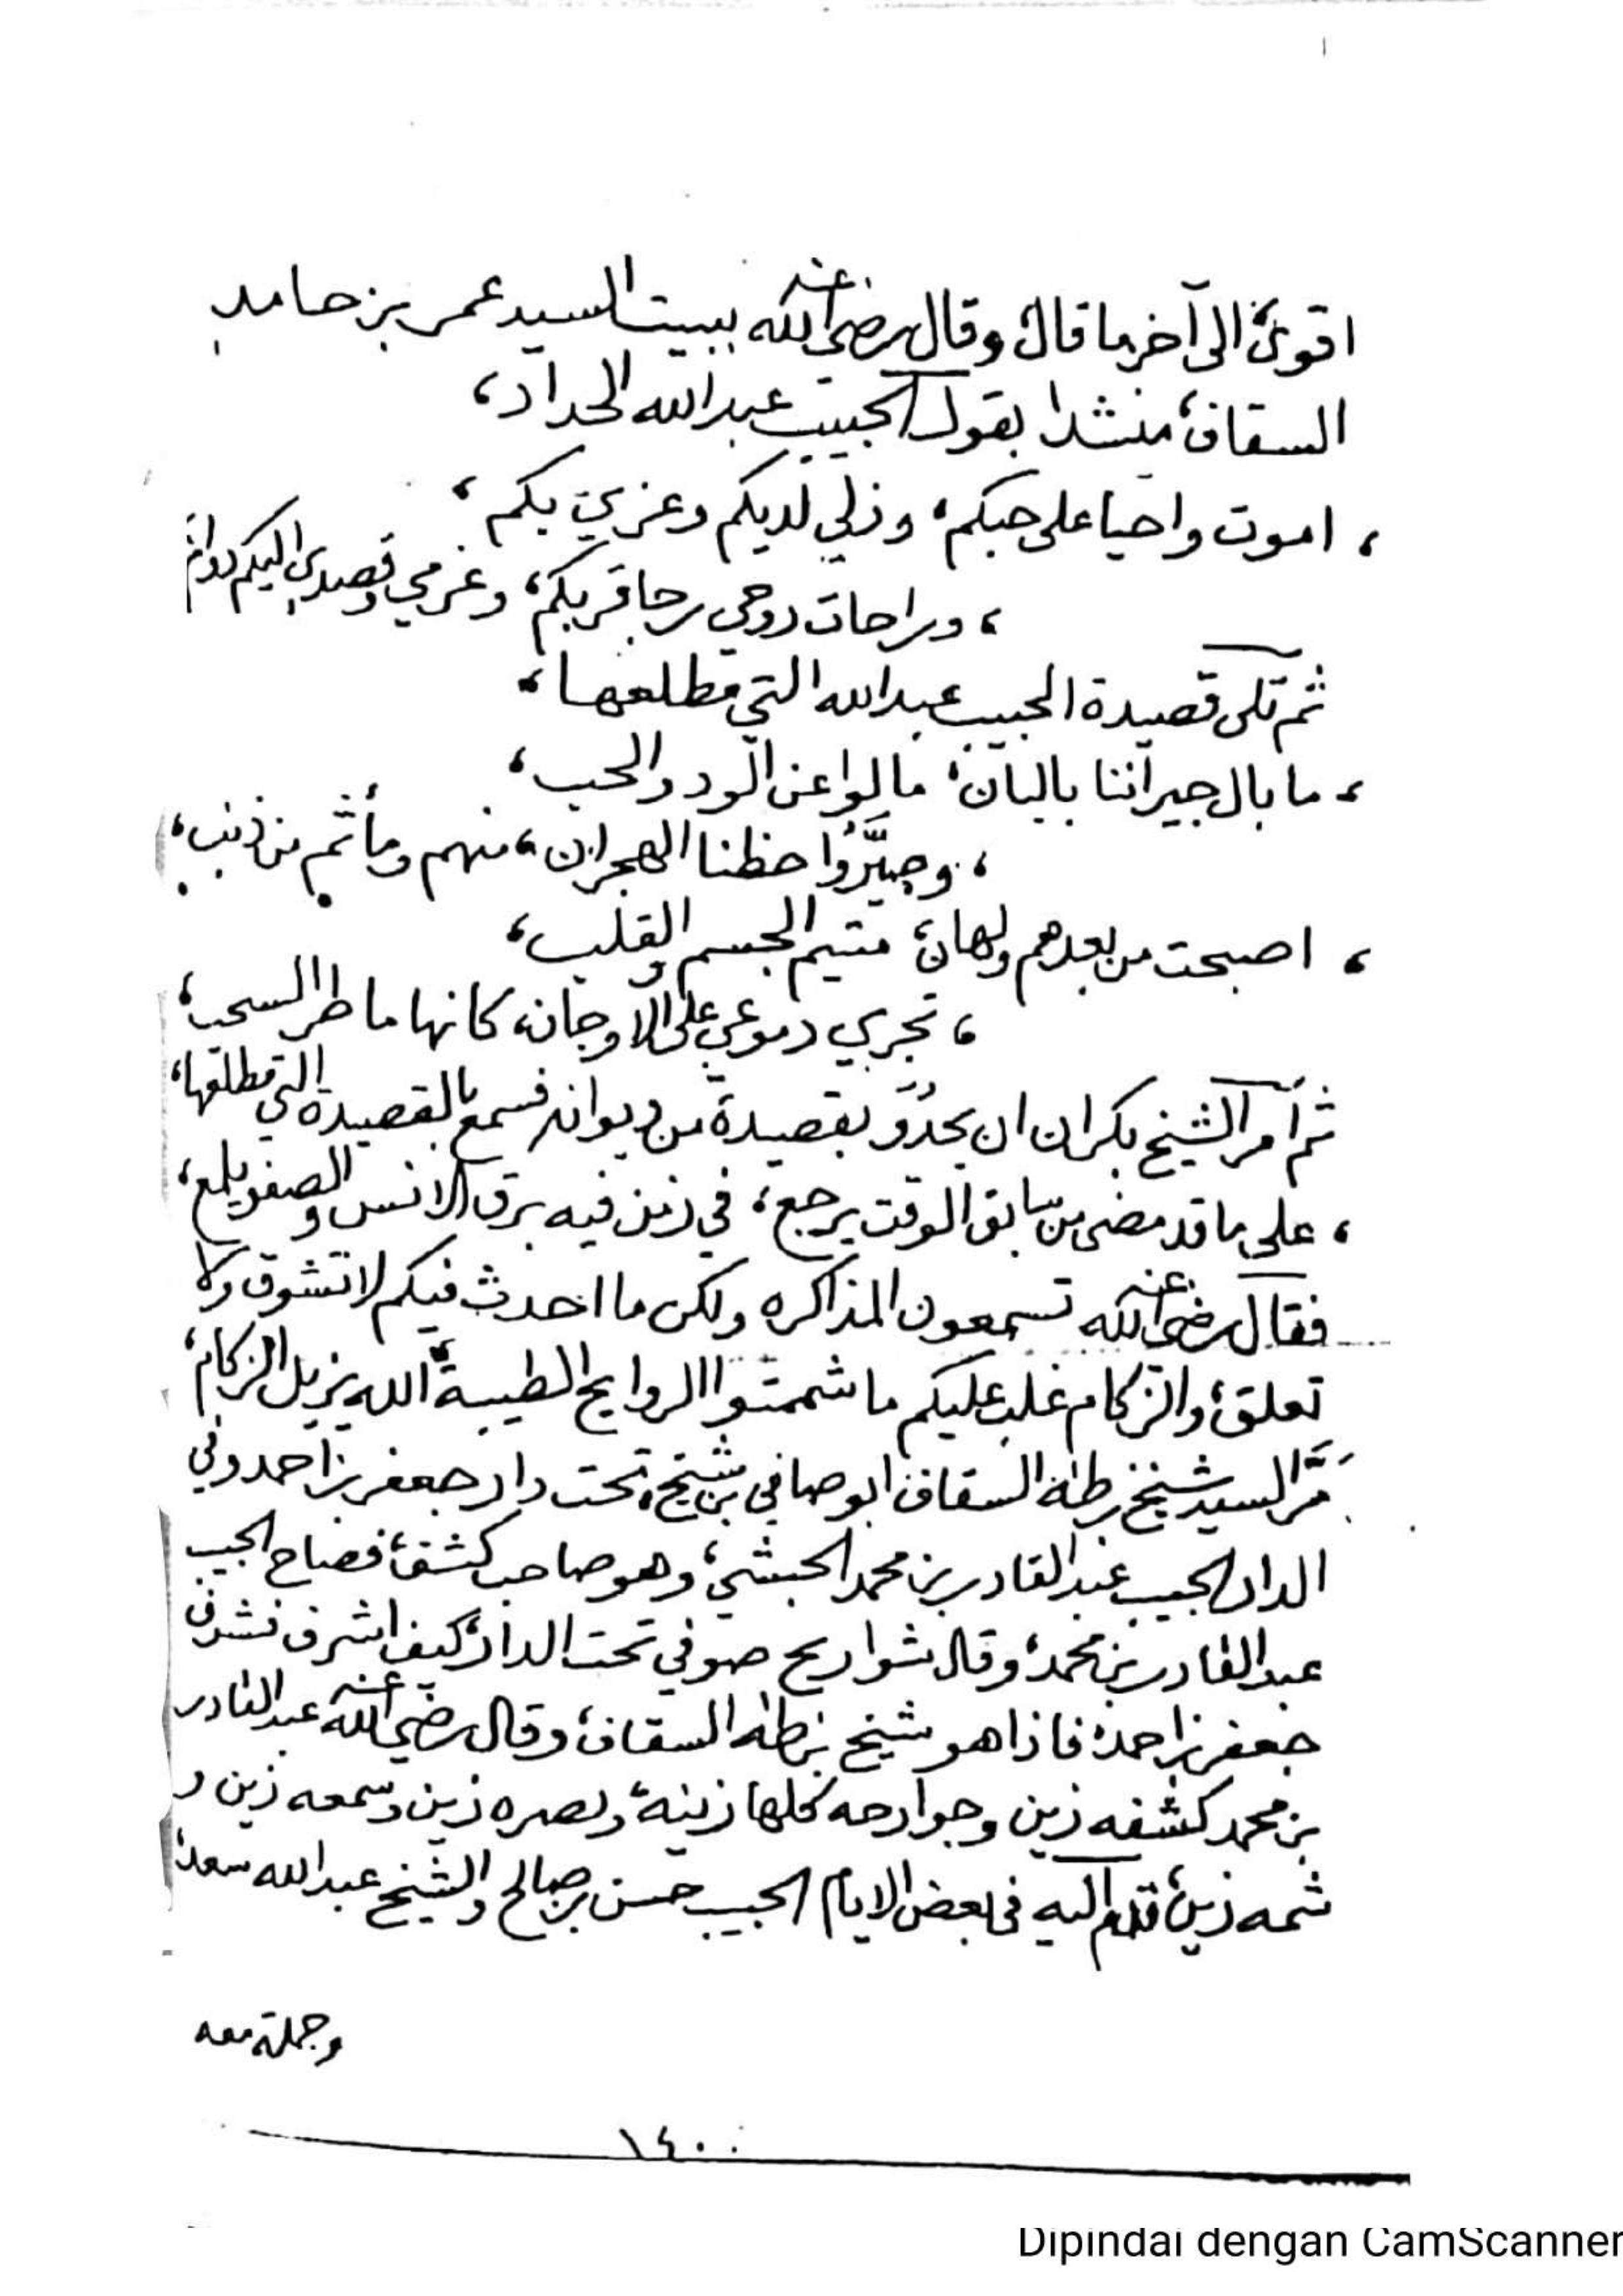 اقوىٰ، الى آخر ما قال، وقال رضي الله عنه ببيت السيد عمر بن حامد
السقاف، منشدا بقول الحبيب عبدالله الحداد،
، اموت واحيا على حبكم، وذلي لديكم وعزي بكم،
، وراحات روحي رجا قربكم، وعزمي وقصدي اليكم دوام
ثم تلى قصيدة الحبيب عبدالله التي مطلعها،
، ما بال جيراننا بالبان، مالوا عن الود والحب،
، وصيَّرُوا حظنا الهجران، منهم وما ثم من ذنب،
، اصبحت من بعدهم ولهان، متيم الجسم والقلب،
، تجري دموعي على الاوجان، كانها ماطر السحب،
ثم أمر الشيخ بكران ان يحدُو بقصيدة من ديوانه فسمع بالقصيدة التي مطلعها،
، على ما قد مضى من سابق الوقت يرجع، في زمن فيه برق الانس والصفو يلمع،
فقال رضي الله عنه تسمعون المذاكره ولكن ما احدث فيكم لا تشوق ولا
تعلق، والزكام غلب عليكم ما شممتوا الروايح الطيبة، الله يزيل الزكام،
مَّر السيد شيخ بن طه السقاف ابو صافي بن شيخ، تحت دار جعفر بن احمد وفي
الدار الحبيب عبدالقادر بن محمد الحبشي، وهو صاحب كشف، فصاح الحبيب
عبدالقادر بن محمد، وقال شوا ريح صوفي تحت الدار، كيف اشرف فشرف
جعفر بن احمد، فاذا هو شيخ بن طه السقاف، وقال رضي الله عنه عبدالقادر
بن محمد كشفه زين وجوارحه كلها زينة، وبصره زين وسمعه زين و
شمه زين، قدم اليه في بعض الايام الحبيب حسن بن صالح والشيخ عبدالله سعد،
وجملة معه
١٤٠
Dipindai dengan CamScanner